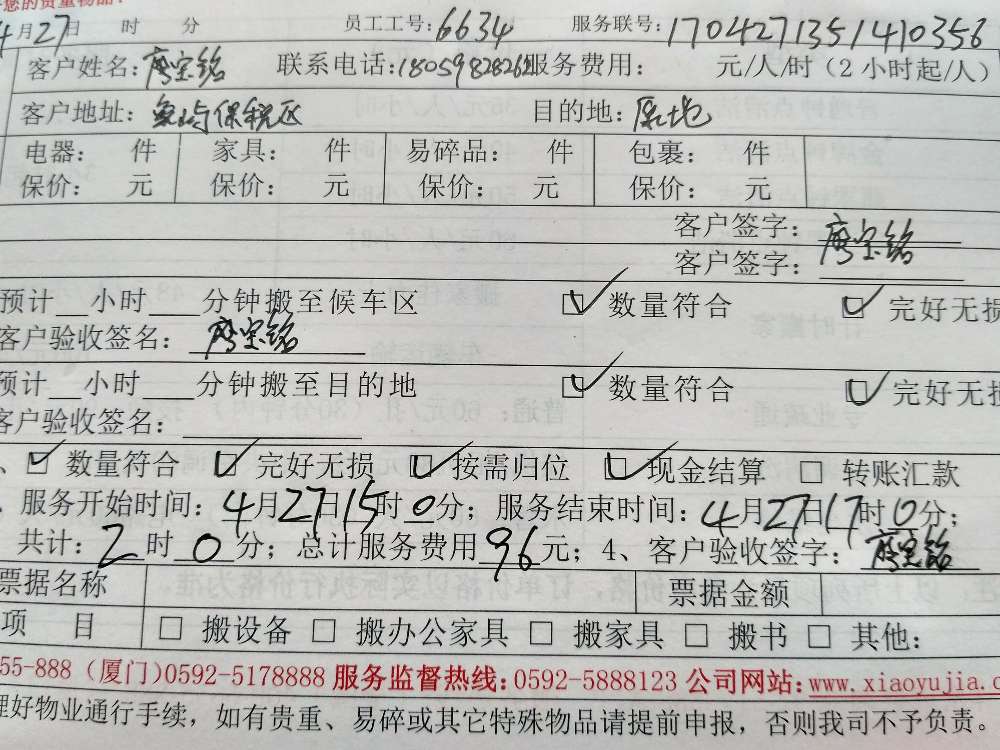 您的贵重物品!
4月27日 时 分 员工工号:6634 服务联号:1704271351410356
客户姓名:廖宝铭 联系电话:18059828262服务费用: 元/人/时(2小时起/人)
客户地址: 象屿保税区 目的地:原地
电器: 件 家具: 件 易碎品: 件 包裹: 件
保价: 元 保价: 元 保价: 元 保价: 元
客户签字: 廖宝铭
客户签字:
预计__小时___分钟搬至候车区 ☑ 数量符合 ☑ 完好无损
客户验收签名: 廖宝铭
预计__小时___分钟搬至目的地 ☑ 数量符合 ☑ 完好无损
客户验收签名:
、☑ 数量符合 ☑ 完好无损 ☑ 按需归位 ☑ 现金结算 □ 转账汇款
、服务开始时间:4月27日15时0分;服务结束时间:4月27日17时0分;
共计:2时0分;总计服务费用96元;4、客户验收签字:廖宝铭
票据名称 票据金额
项 目 □ 搬设备 □ 搬办公家具 □ 搬家具 □ 搬书 □ 其他:
55-888(厦门)0592-5178888 服务监督热线:0592-5888123 公司网站:www.xiaoyujia.c
理好物业通行手续,如有贵重、易碎或其它特殊物品请提前申报,否则我司不予负责。